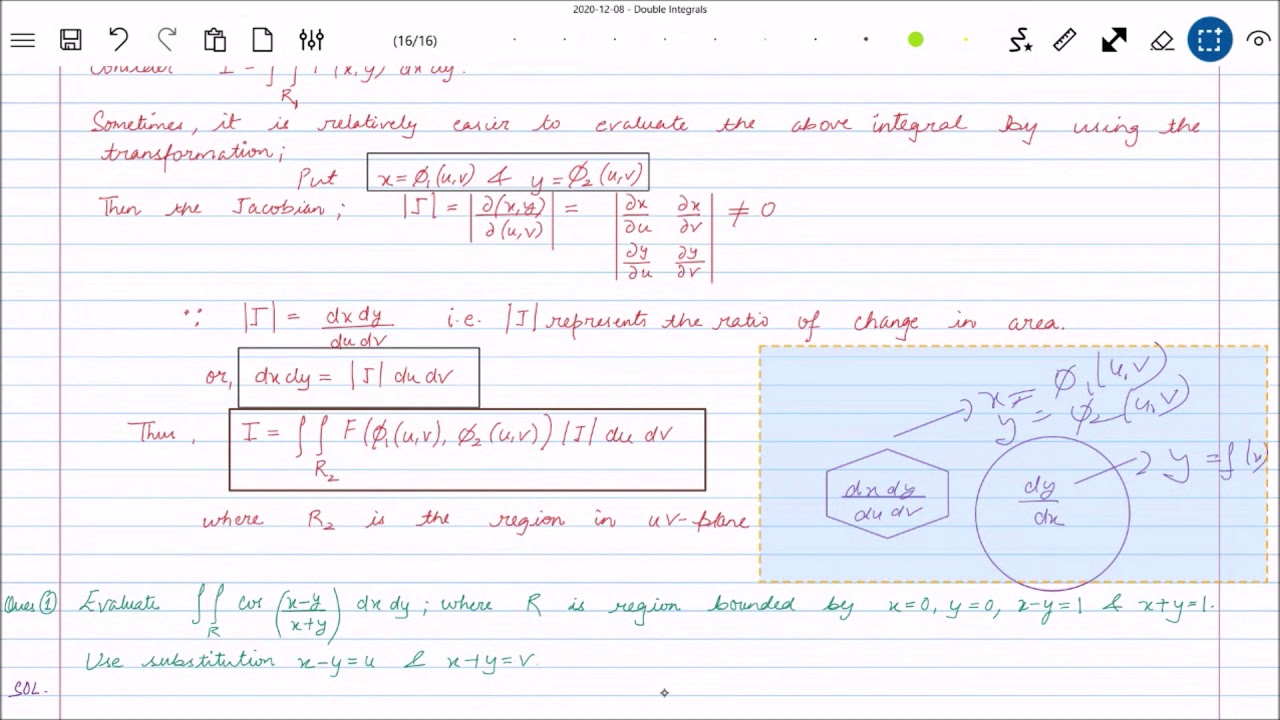 2020-12-08 - Double Integrals
(16/16)
Consider I = ∫∫ F(x,y) dx dy.
R₁
Sometimes, it is relatively easier to evaluate the above integral by using the
transformation;
Put x = ϕ₁(u,v) & y = ϕ₂(u,v)
Then the Jacobian; |J| = |∂(x,y)/∂(u,v)| = |∂x/∂u ∂x/∂v| ≠ 0
|∂y/∂u ∂y/∂v|
∵ |J| = dx dy/du dv i.e. |J| represents the ratio of change in area.
or, dx dy = |J| du dv
Thus, I = ∫∫ F(ϕ₁(u,v), ϕ₂(u,v)) |J| du dv
R₂
where R₂ is the region in uv-plane
x = ϕ₁(u,v)
y = ϕ₂(u,v)
dx dy/du dv
dy/dx
y = f(x)
Ques ① Evaluate ∫∫ cos (x-y/x+y) dx dy; where R is region bounded by x=0, y=0, x-y=1 & x+y=1.
R
Use substitution x-y=u & x+y=v.
SOL.